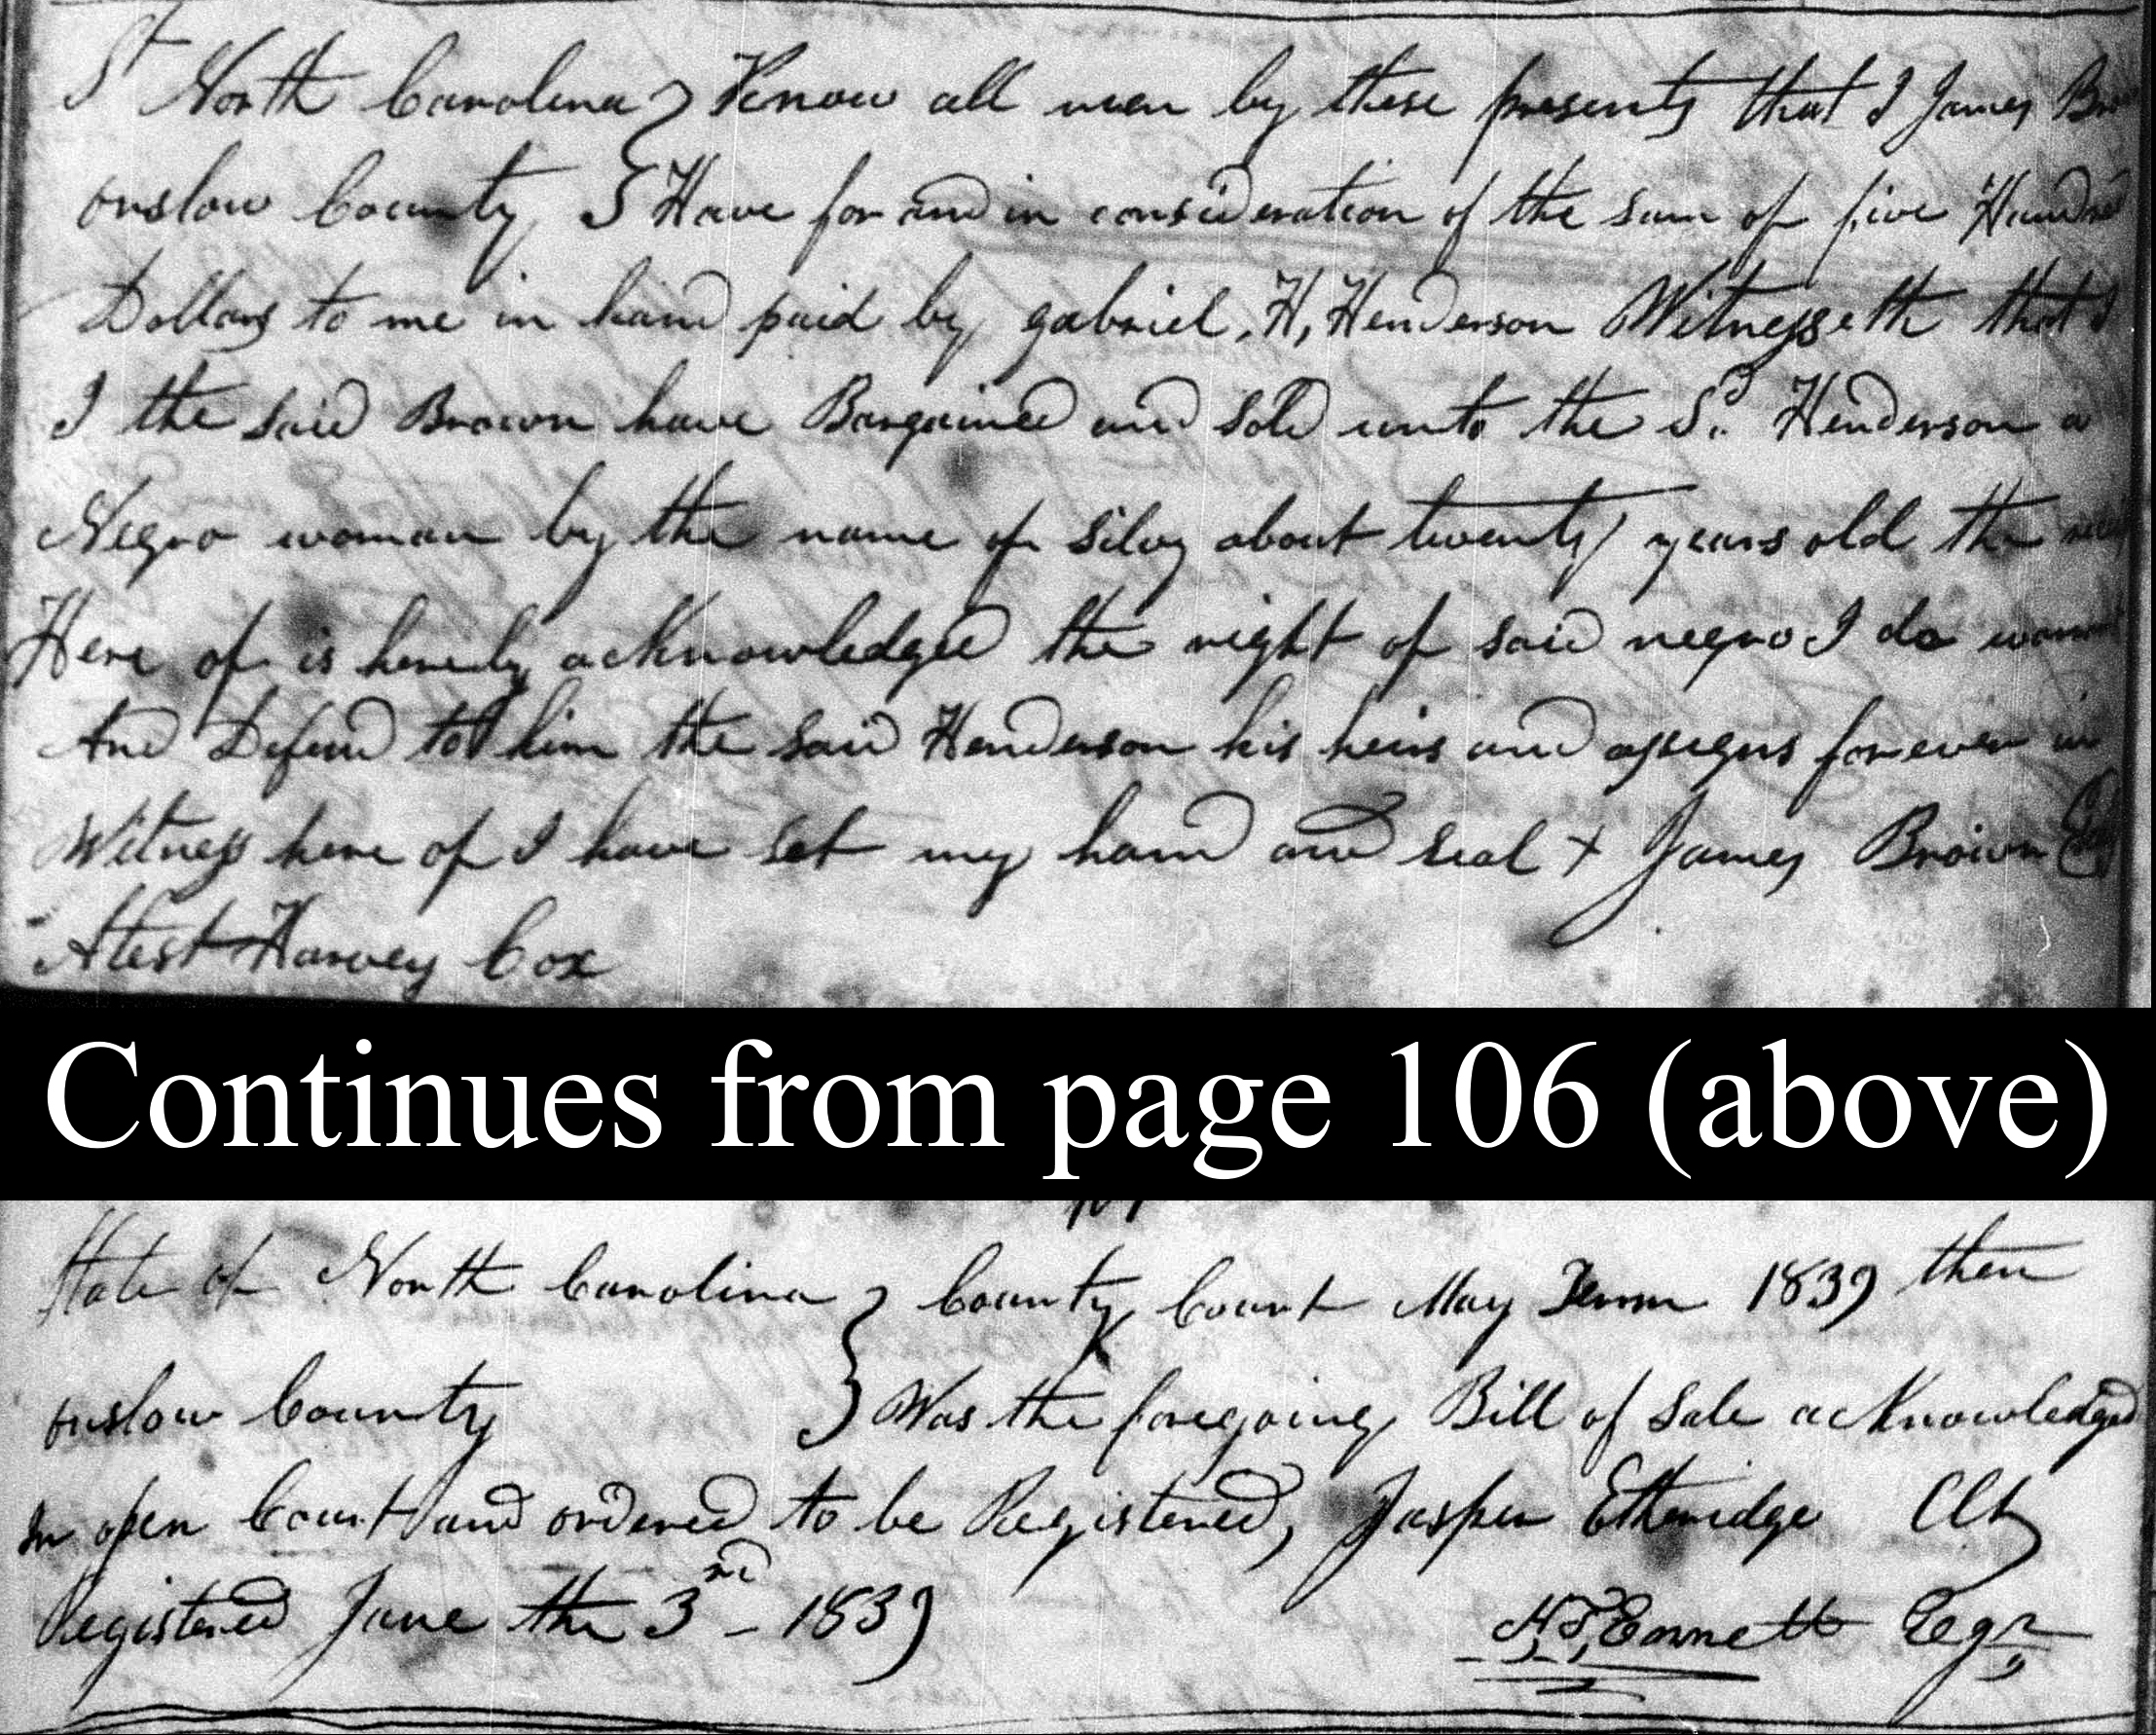 St North Carolina } Know all men by these presents that I James
onslow County } Have for and in consideration of the sum of five Hundred
Dollars to me in hand paid by gabriel, H, Henderson Witnesseth that I
I the said Brown have Bargained and sold unto the Sd. Henderson a
Negro woman by the name of Silvy about twenty years old the
Here of is hereby acknowledged the right of said negro I do
And Defend to him the said Henderson his heirs and assigns forever in
Witness here of I have set my hand and seal + James Brown
Atest Harvey Cox
Continues from page 106 (above)
107
State of North Carolina } County Court May Term 1839 then
onslow County } Was the foregoing Bill of Sale acknowledged
In open Court and ordered to be Registered, Jasper Etheridge Clk
Registered June the 3rd - 1839 Ennett Regr